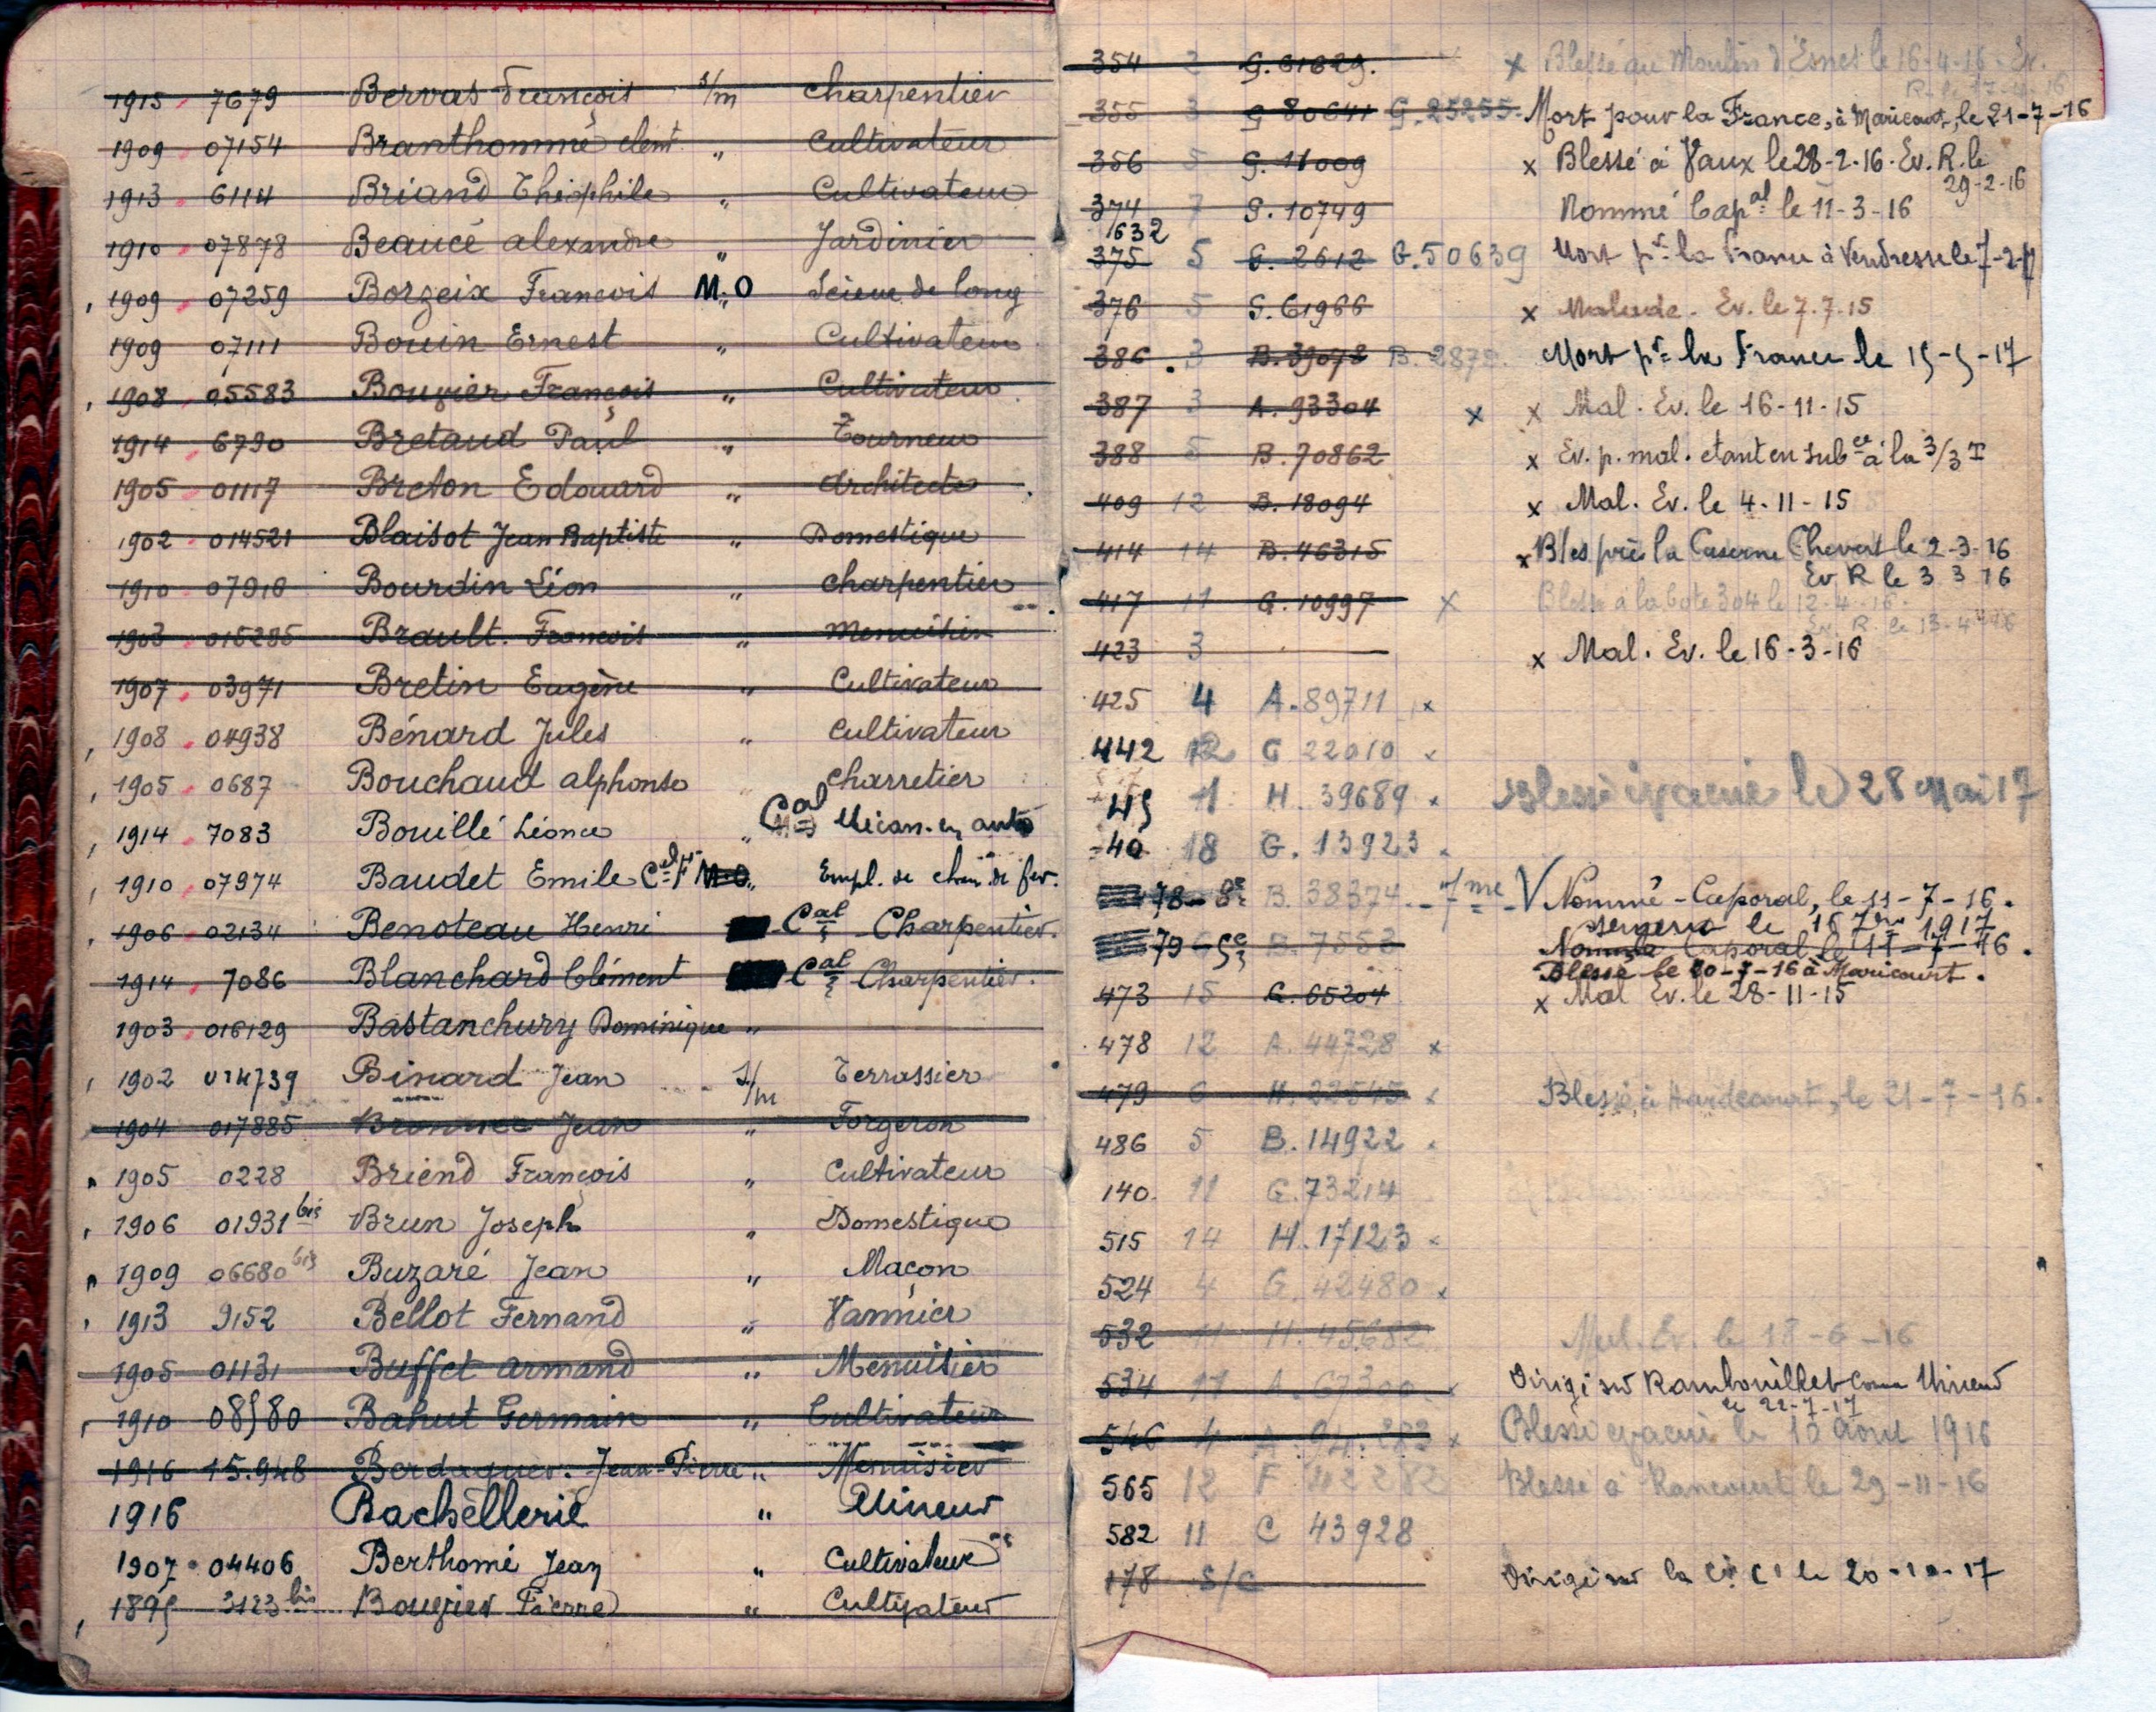 1915 7679 Bervas François s/m Charpentier
1909 07154 Branthomme clent " Cultivateur
1913 6114 Briand Théophile " Cultivateur
1910 07878 Beaucé alexandre " Jardinier
1909 07259 Borzeix François M.O " Scieur de long
1909 07111 Bouin Ernest " Cultivateur
1908 05583 Bouvier François " Cultivateur
1914 6790 Bretaud Paul " Tourneur
1905 01117 Breton Edouard " Architecte
1902 014521 Blaisot Jean Baptiste " Domestique
1910 07910 Bourdin Léon " charpentier
1903 015285 Brault. François " Menuisier
1907 03971 Bretin Eugène " Cultivateur
1908 04938 Bénard Jules " Cultivateur
1905 0687 Bouchaud alphonse " charretier
1914 7083 Bouillé Léonce " Cal Mécan. en auto
1910 07974 Baudet Emile Cel F M.O " Empl. de chem. de fer.
1906 02134 Benoteau Henri Cal Charpentier.
1914 7086 Blanchard Clément Cal Charpentier.
1903 016129 Bastanchury Dominique "
1902 014739 Binard Jean s/m Terrassier
1904 017885 Jean " Forgeron
1905 0228 Briend François " Cultivateur
1906 01931 bis Brun Joseph " Domestique
1909 06680 bis Buzaré Jean " Maçon
1913 9152 Bellot Fernand " Vannier
1905 01131 Buffet armand " Menuisier
1910 08580 Bahut Germain " Cultivateur
1916 15.948 Berdaguer. Jean-Pierre " Menuisier
1916 Bachellerie " Mineur
1907 04406 Berthomé Jean " Cultivateur
1895 3123 bis Bouvier Pierre " Cultivateur
354 2 G. 61629. x Blessé au Moulin d'Esnes le 16-4-16. Ev.
R. le 17-4-16
355 3 G 80641 G. 25255. Mort pour la France, à Maricourt, le 21-7-16
356 5 G. 11009 x Blessé à Vaux le 28-2-16. Ev. R. le
29-2-16
374 7 G. 10749 Nommé Capal le 11-3-16
632
375 5 G. 2612 G. 50639 Mort pr la France à Vendresse le 7-2-17
376 5 G. 61966 x Malade. Ev. le 7.7.15
386 3 B. 39078 B. 2872. Mort pr la France le 15-5-17
387 3 A. 93304 x x Mal. Ev. le 16-11-15
388 5 B. 70862 x Ev. p. mal. etant en subce à la 3/3 T
409 12 B. 18094 x Mal. Ev. le 4-11-15
414 14 B. 46315 x Bles près la Caserne Chevert le 2-3-16
Ev R le 3 3 16
417 11 G. 10997 x Blessé à la Cote 304 le 12-4-16.
Ev. R. le 13-4-16
423 3 x Mal. Ev. le 16-3-16
425 4 A. 89711 x
442 12 G 22010 x
45 11 H. 39689 x Blessé évacué le 28 Mai 17
40 18 G. 13923
78 8e B. 38374 7me V Nommé Caporal, le 11-7-16.
1917
79 5e B. 7553 Nommé Caporal le 11-7-16.
Blessé le 20-7-16 à Maricourt.
473 15 G. 65204 x Mal Ev. le 28-11-15
478 12 A. 44728 x
479 6 H. 22545 x Blessé, à Hardecourt, le 21-7-16.
486 5 B. 14922
140 11 G. 73214
515 14 H. 17123 x
524 4 G. 42480 x
532 11 H. 45682 Mal. Ev. le 18-6-16
534 11 A. 67300 x Dirigé sur Rambouillet comme Mineur
le 22-7-17
546 4 A. 94.282 x Blessé évacué le 10 Aout 1916
565 12 F 42282 Blessé à Rancourt le 29-11-16
582 11 C 43928
178 S/C Dirigé sur la Cie C1 le 20-10-17